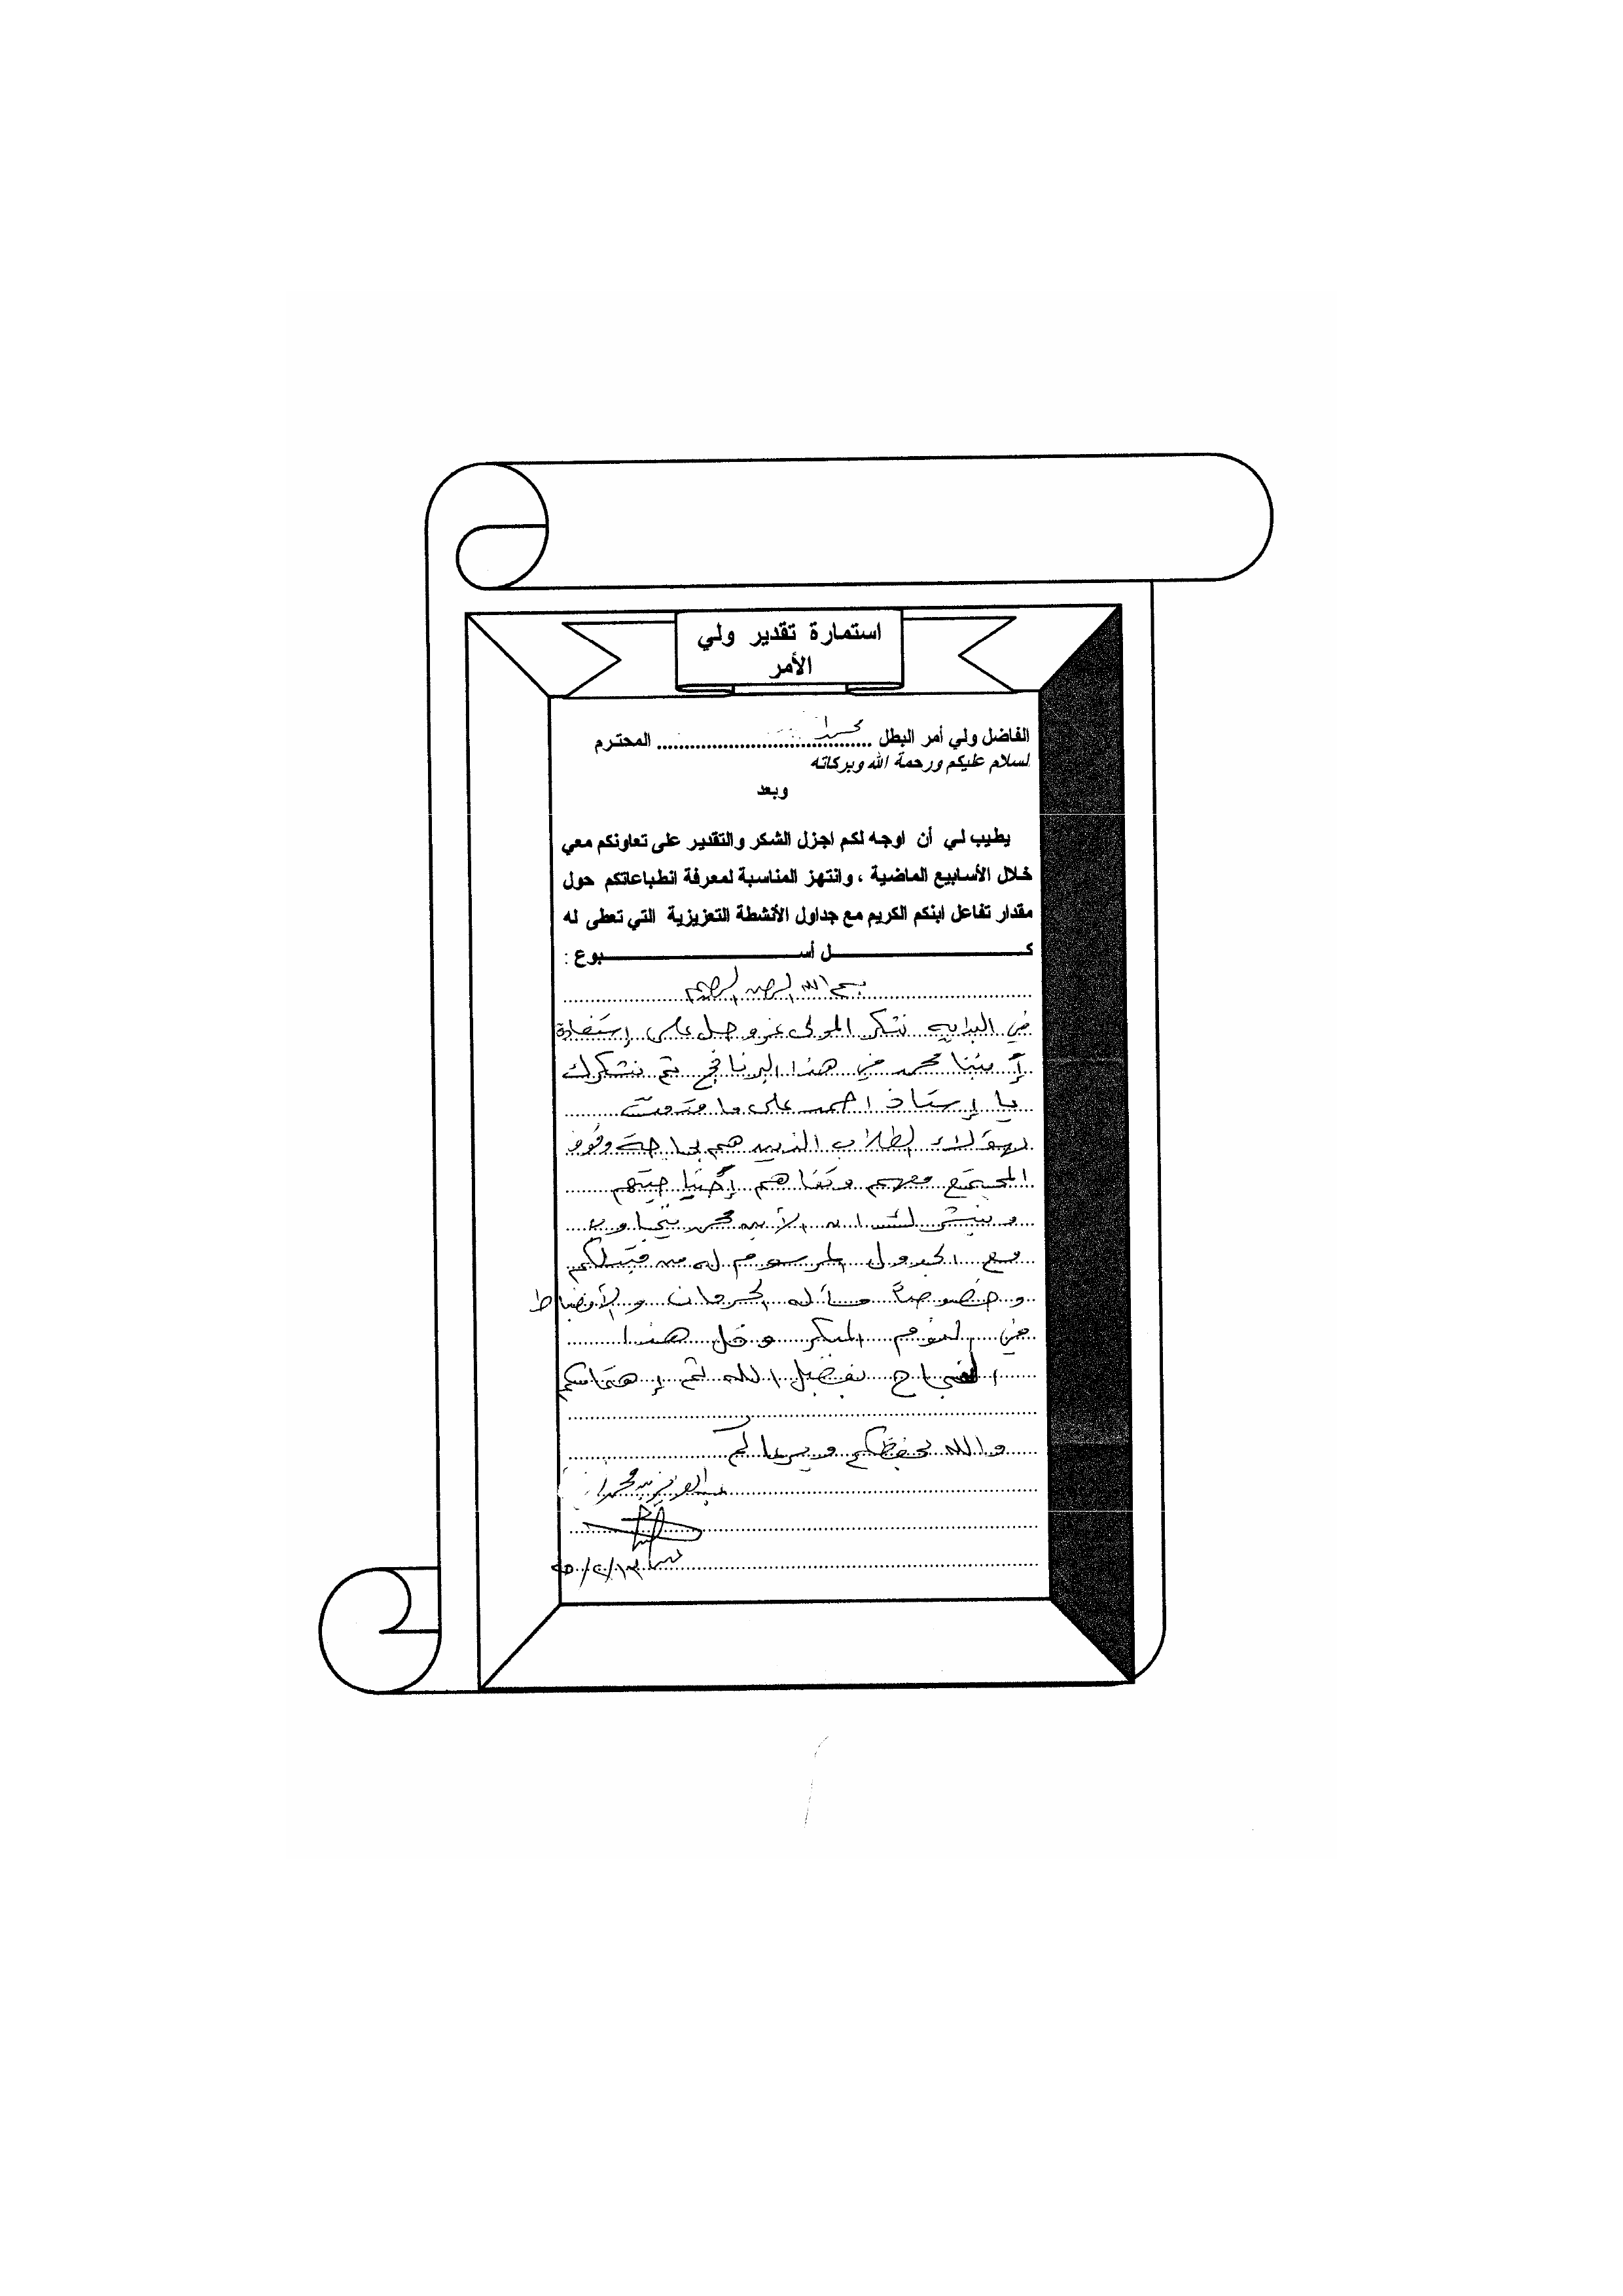 استمارة تقدير ولي
الأمر
الفاضل ولي أمر البطل محمد ........ المحترم
لسلام عليكم ورحمة الله وبركاته
وبعد
يطيب لي أن اوجه لكم اجزل الشكر والتقدير على تعاونكم معي
خلال الأسابيع الماضية ، وانتهز المناسبة لمعرفة انطباعاتكم حول
مقدار تفاعل ابنكم الكريم مع جداول الأنشطة التعزيزية التي تعطى له
كـــل أســـبوع :
بسم الله الرحمن الرحيم
في البدايه نشكر المولى عز وجل على إستفادة
إبننا محمد في هذا البرنامج ثم نشكرك
يا إستاذ احمد على ما قدمت
لهؤلاء الطلاب الذين هم بحاجة وقوف
المجتمع معهم وتفاهم إحتياجيتهم
ونبشركم الأبن محمد يتجاوب
مع الجدول المرسوم له من قبلكم
وخصوصاً مسأله الحرمان والأنضباط
في النوم المبكر وكل هذا
النجاح بفضل الله ثم إهتمامكم
والله يحفظكم ويرعاكم
عبدالعزيز محمد